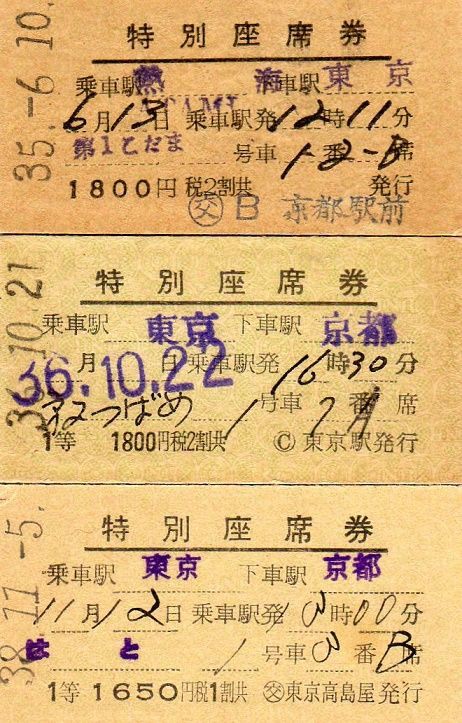 35.-6.10.
特別座席券
乗車駅 熱海 下車駅 東京
ATAMI
6月13日 乗車駅発 12時11分
第1こだま 号車 12番B席
1800円 税2割共 発行
交 B 京都駅前
36.10.21
特別座席券
乗車駅 東京 下車駅 京都
月 日 乗車駅発 16時30分
36.10.22
つばめ 1号車 7番A席
1等 1800円税2割共 Ⓒ東京駅発行
38.11.-5.
特別座席券
乗車駅 東京 下車駅 京都
11月12日 乗車駅発 時00分
はと 1号車 番B席
1等 1650円税1割共 交東京高島屋発行